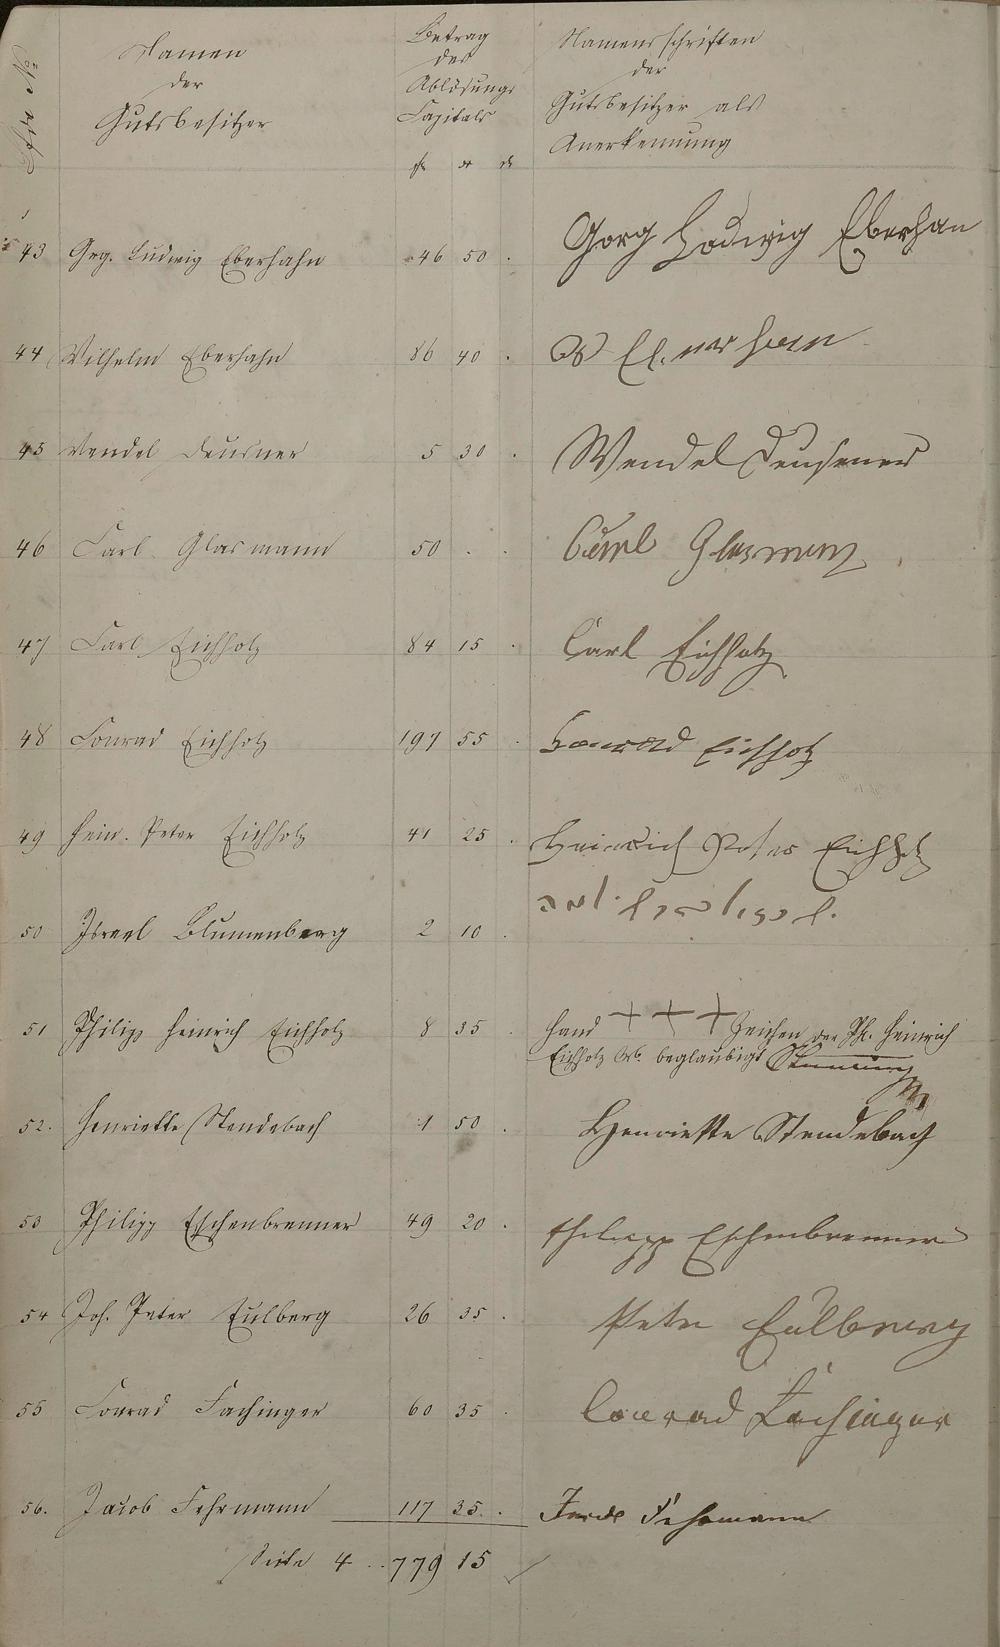 Namen
der
Gutsbesitzer
Betrag
des
Ablösungs
Capitals
Namensschriften
der
Gutsbesitzer als
Anerkennung
43 Grg. Ludwig Eberhahn 46 50 . Gorg Lodwig Eberhan
44 Wilhelm Eberhahn 86 40 . W
45 Wendel Deusner 5 30 . Wendel Deusener
46 Carl Glasmann 50 . . Carl Glasmann
47 Carl Eichholz 84 15 . Carl Eichholz
48 Conrad Eichholz 197 55 . Konrad Eichholz
49 Hein. Peter Eichholz 41 25 . Heinrich Peter Eichholz
50 Israel Blumenberg 2 10 .
51 Philipp Heinrich Eichholz 8 35 . Hand +++ Zeichen der Ph. Heinrich
Eichholz Wb. beglaubigt
52. Henriette Stendebach 1 50 . Henriette Stendebach
53 Philipp Eschenbrenner 49 20 . Philipp Eschenbrenner
54 Joh. Peter Eulberg 26 35 . Peter Eulberg
55 Conrad Fachinger 60 35 . Conrad Fachinger
56. Jacob Fehrmann 117 35 . Fehrmann
Seite 4 .. 779 15